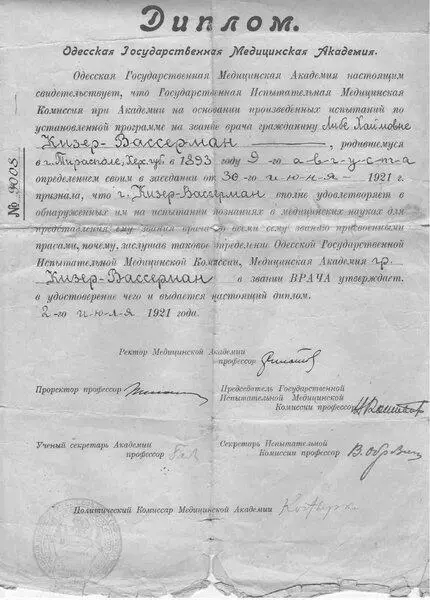 Диплом.
Одесская Государственная Медицинская Академия.
Одесская Государственная Медицинская Академия настоящим
свидетельствует, что Государственная Испытательная Медицинская
Комиссия при Академии на основании произведенных испытаний по
установленной программе на звание врача гражданину Либе Хаймовне
Кизер-Вассерман, родившемуся
в г. Тирасполе, Хер. губ в 1893 году 9-го августа
определением своим в заседании от 30-го июня 1921 г.
признала, что г. Кизер-Вассерман вполне удовлетворяет в
обнаруженных им на испытании познаниях в медицинских науках для
представления ему звания врача со всеми сему званию присвоенными
прасами, почему, заслушав таковое определение Одесской Государственной
Испытательной Медицинской Комиссии, Медицинская Академия гр.
Кизер-Вассерман в звании ВРАЧА утверждает.
в удостоверение чего и выдается настоящий диплом.
2-го июля 1921 года.
№ 14008
Ректор Медицинской Академии
профессор
Проректор профессор
Председатель Государственной
Испытательной Медицинской
Комиссии профессор
Ученый секретарь Академии
профессор
Секретарь Испытательной
Комиссии профессор
Политический Комиссар Медицинской Академии